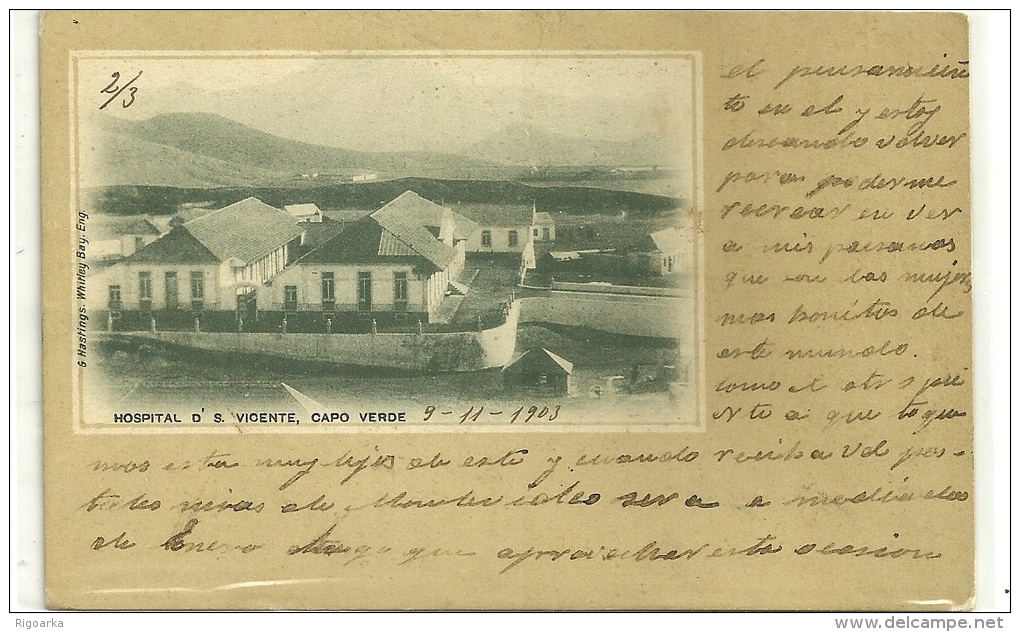 2/3
G Hastings. Whitley Bay. Eng.
HOSPITAL D' S. VICENTE, CAPO VERDE 9-11-1903
el pensamien
to en el y estoy
deseando volver
para poderme
recrear en ver
a mis paisanas
que son las mujeres
mas bonitas de
este mundo.
como el otro puer
to a que toque
mos esta muy lejos de este y cuando reciba Vd pos-
tales mias de Montevideo sera a mediados
de Enero que aprovechar esta ocasion
Rigoarka
www.delcampe.net